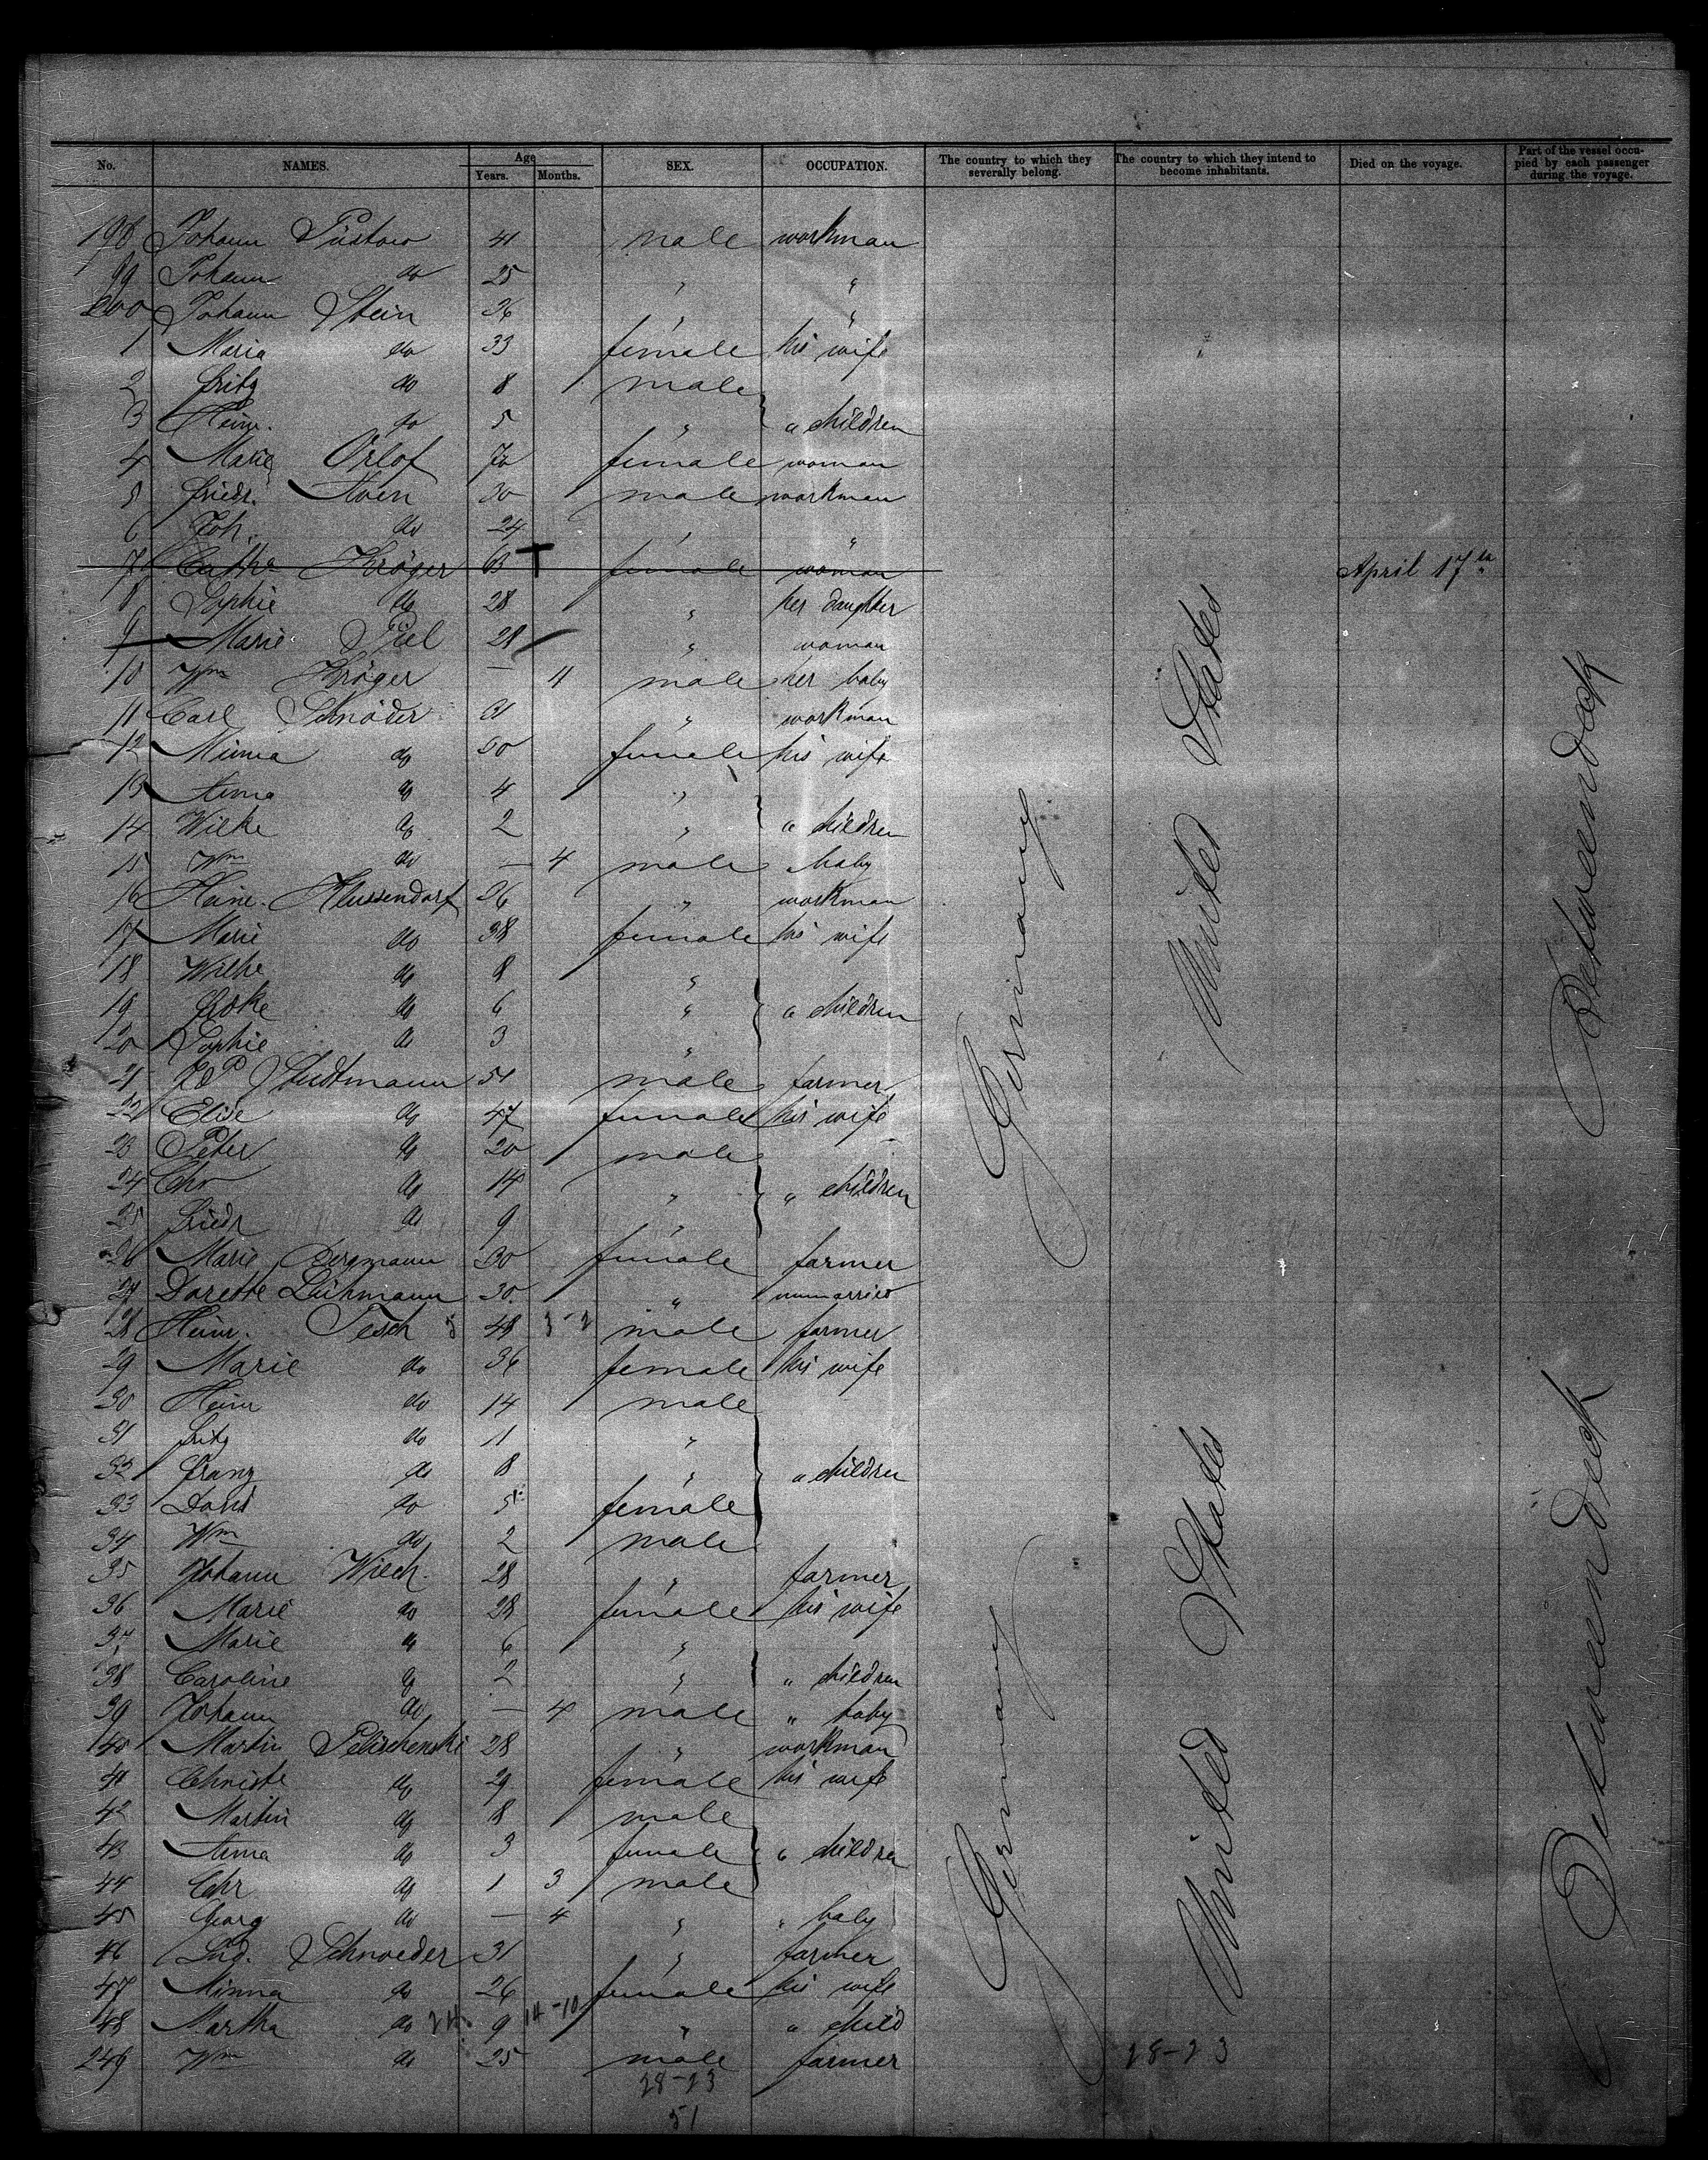 No. NAMES. Age Years. Months. SEX. OCCUPATION. The country to which they severally belong. The country to which they intend to become inhabitants. Died on the voyage. Part of the vessel occupied by each passenger during the voyage.
198 Johann Püstow 41 male workman
99 Johann do 25 " "
200 Johann Stein 36 " "
1 Maria do 33 female his wife
2 Fritz do 8 male
3 Heinr. do 5 " " children
4 Marie Orlof 70 female woman
5 Friedr. Aven 30 male workman
6 Joh. do 24 " "
7 Cathr Kröger 63 + female woman April 17th
8 Sophie do 28 " her daughter
9 Marie Piel 28 " woman
10 Wm Kröger — 11 male her baby
11 Carl Schröder 31 " workman
12 Minna do 30 female his wife
13 Anna do 4 "
14 Wilhe do 2 " " children
15 Wm do — 4 male " baby
16 Heinr. Klussendorf 36 " workman
17 Marie do 38 female his wife
18 Wilhe do 8 "
19 do 6 " " children
20 Sophie do 3 "
21 Studtmann 51 male farmer
22 Elise do 47 female his wife
23 Peter do 20 male
24 Chr do 14 " " children
25 Friedr do 9 "
26 Marie Bergmann 30 female farmer
27 Dorette Lühmann 30 " unmarried
28 Heinr. Tesch 5 48 3-2 male farmer
29 Marie do 36 female his wife
30 Heinr do 14 male
31 Fritz do 11 "
32 Franz do 8 " " children
33 Doris do 5 female
34 Wm do 2 male
35 Johann Wiech. 28 " farmer
36 Marie do 28 female his wife
37 Marie do 6 "
38 Caroline do 2 " " children
39 Johann do — 4 male " baby
40 Martin Pelischenski 28 " workman
41 Christe do 29 female his wife
42 Martin do 8 male
43 Anna do 3 female " children
44 Chr do 1 3 male
45 Georg do — 4 " " baby
46 Lud. Schroeder 31 " farmer
47 Minna do 26 female his wife
48 Martha do 24. 9 14-10 " " child
249 Wm do 25 male farmer
28-23
28-23
51
Germany
United States
Betweendeck
Germany
United States
Betweendeck